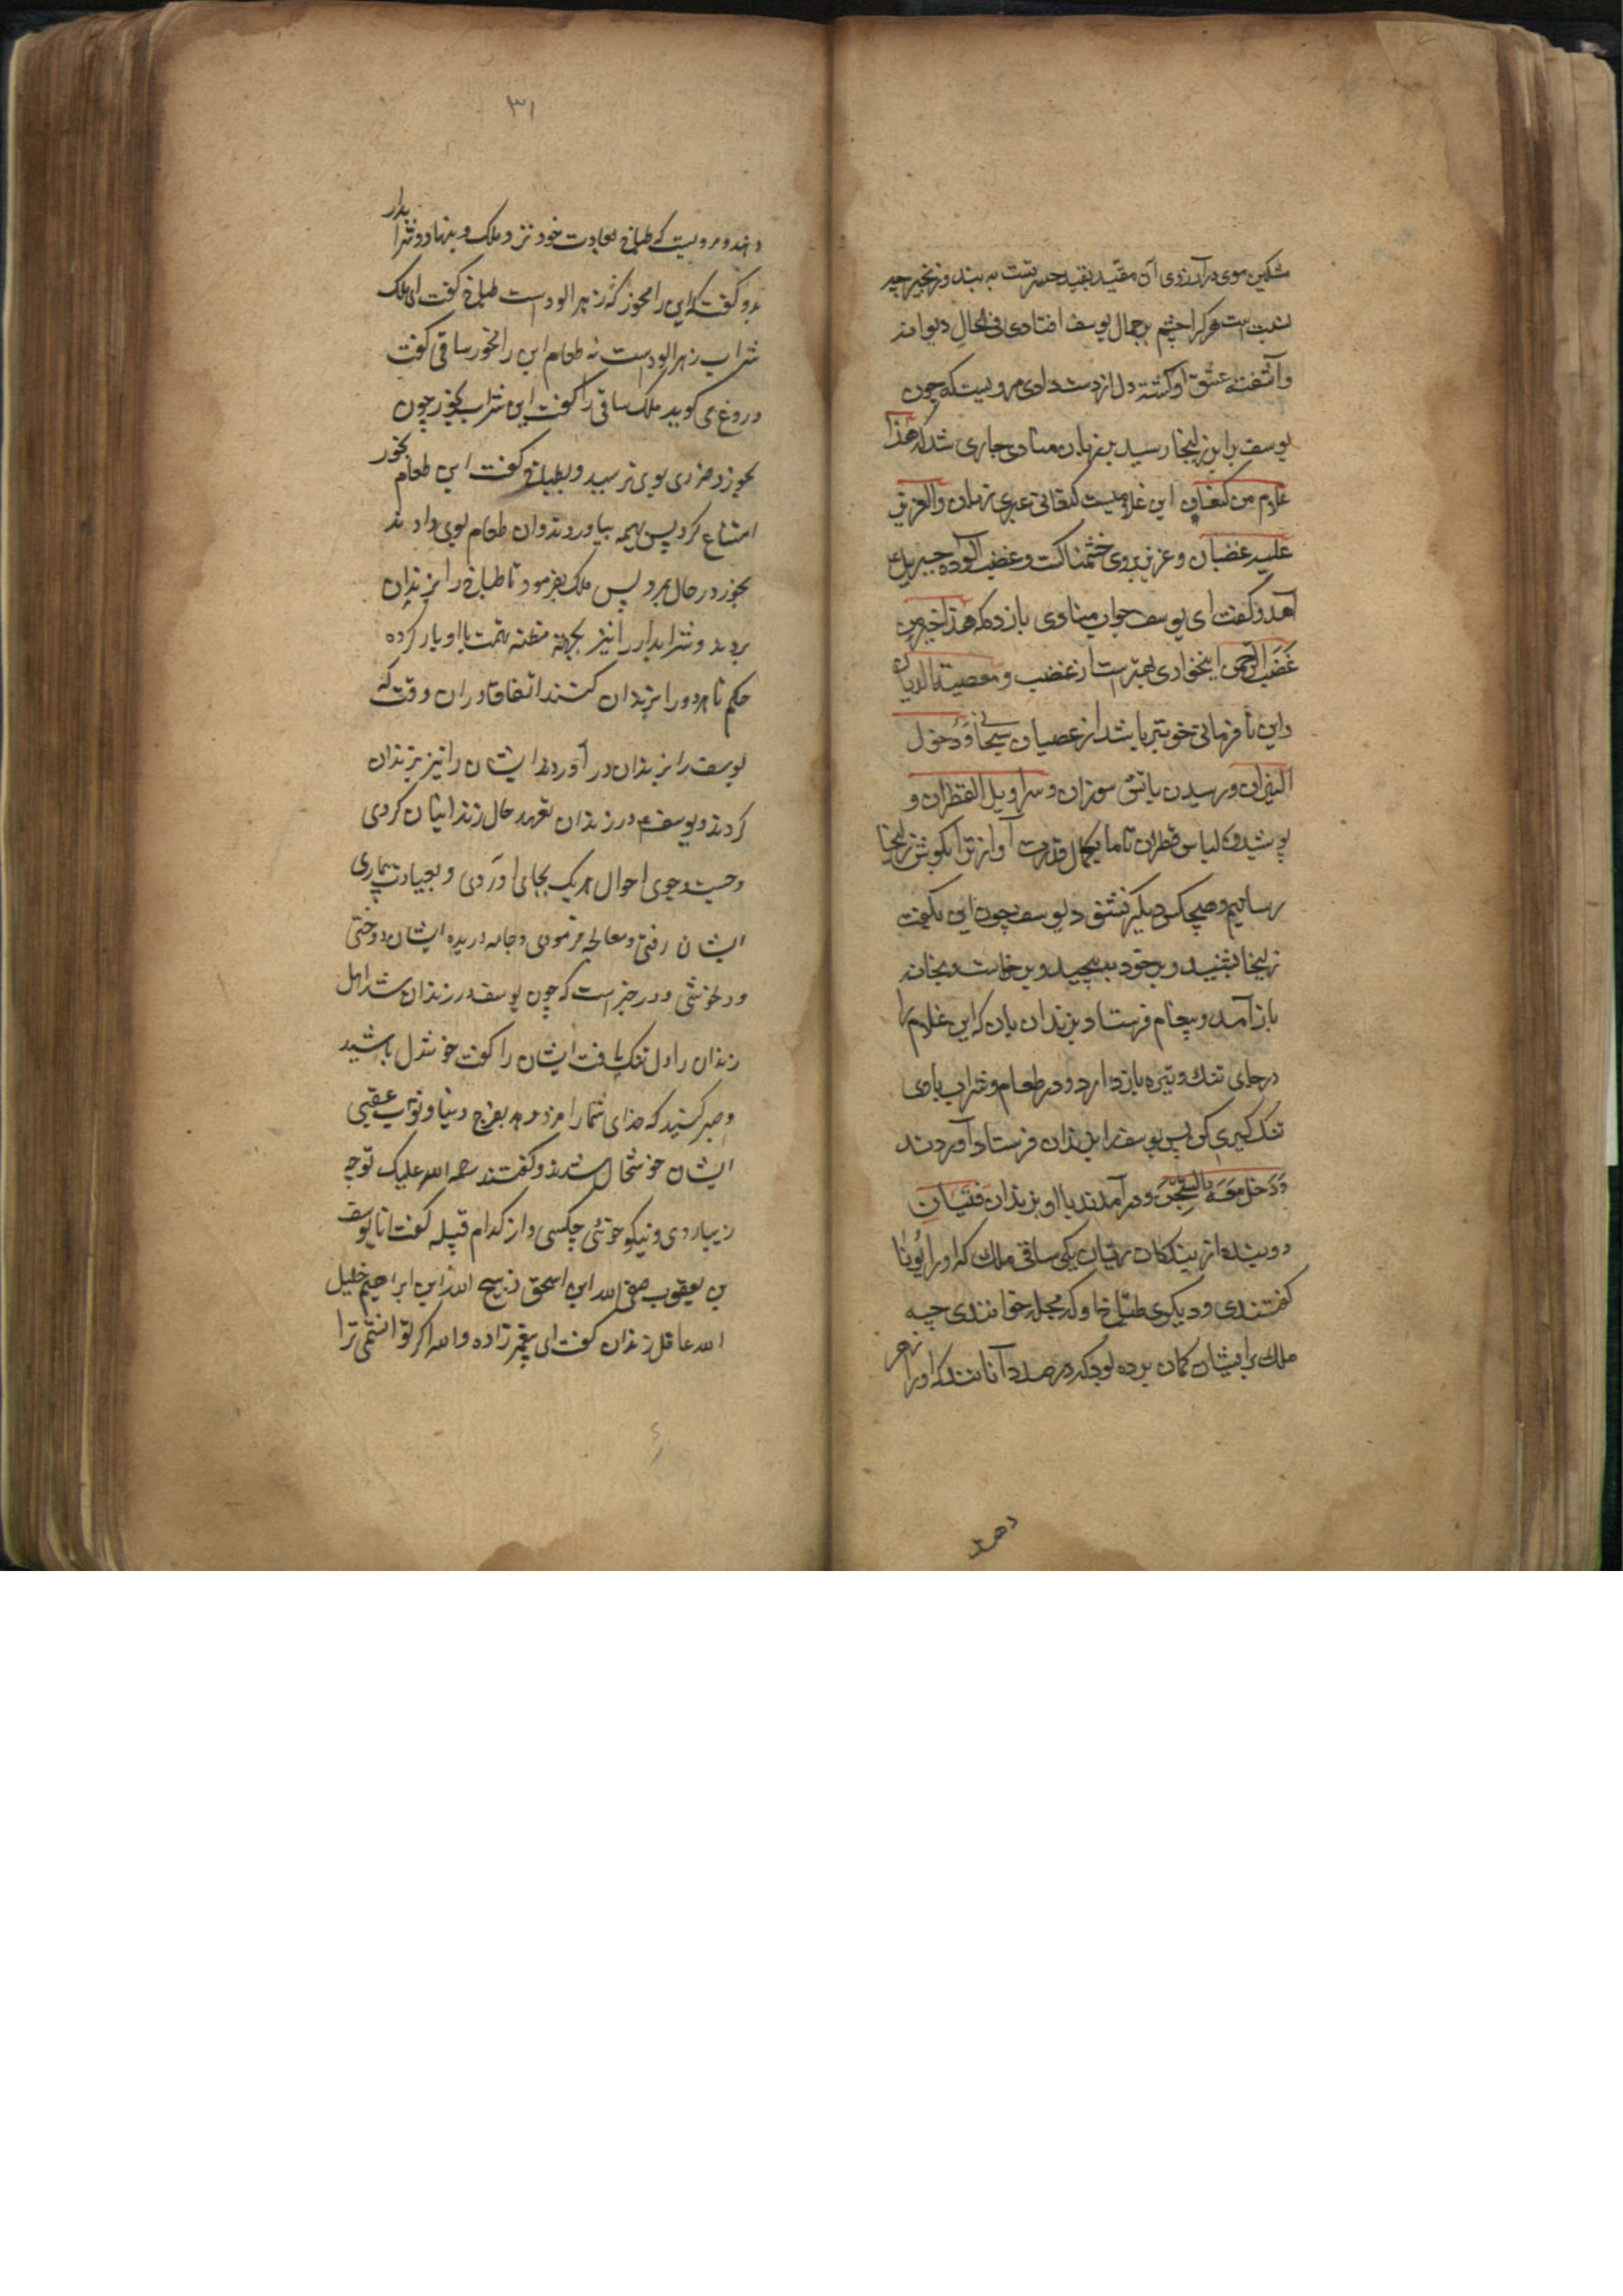 مشکین موی در آرزوی آن مقید بقید حضرتست به بند و زنجیر چه
نسبت است هر کرا چشم بر جمال یوسف افتادی فی الحال دیوانه
وآشفته عشق او کشته دل از دست دادی مرویست که چون
یوسف برابر زلیخا رسید بر زبان منادی جاری شد که هذا
غلام من کنعان این غلامیست کنعانی عبری زبان والعزیز
علیه غضبان و عزیز بروی خشمناکست و غضب آلوده جبریل ع
آمد و کفت ای یوسف جواب منادی باز ده که هذا خیر من
غضب الرحمن اینخواری بهترست از غضب و معصیة الدیان
واین نافرمانی خوبتر باشد از عصیان سبحانی و دخول
النیران و رسیدن باتش سوزان و سرابیل القطران و
پوشیدن لباس قطران تا ما بکمال قدرت آواز ترا بکوش زلیخا
رسانیم و هیچکس دیکر نشنود یوسف چون این بکفت
زلیخا بشنید و بر خود به پیچید و بر خاست و بخانه
باز آمد و پیغام فرستاد بزندان بان که این غلام را
در جای تنک و تیره باز دارد و در طعام و شراب باوی
تنک کیری کن پس یوسف را بزندان فرستاد آوردند
وَدَخَلَ مَعَهُ السِّجْنَ و در آمدند با او بزندان فَتَیَانِ
دو بنده از بندکان ریان یکی ساقی ملک که اورا یُونا
کفتندی و دیکری طباخ او که مجلد خواندندی چه
ملک برایشان کمان برده بود که در صدد آنانند که اورا زهر
دهند
۳۱
دهند و مرویست که طباخ بعادت خود نزد ملک و بنهاد و شرابدار
بدو کفت که این را مخور که زهر الودست طباخ کفت ای ملک
شراب زهر الودست نه طعام این را مخور ساقی کفت
دروغ می کوید ملک ساقی را کفت این شراب بخور چون
بخورد ضرری بوی نرسید و بطباخ کفت این طعام بخور
امتناع کرد پس بهیمه بیاوردند و ان طعام بوی دادند
بخورد در حال بمرد پس ملک بفرمود تا طباخ را بزندان
بردند و شرابدار را نیز بجهة مظنه تهمت با او یار کرده
حکم تا هر دو را بزندان کنند اتفاقا در ان وقت که
یوسف را بزندان در آوردند ایشان را نیز بزندان
کردند و یوسف ع در زندان تعهد حال زندانیان کردی
و جست و جوی احوال هر یک بجای اوردی و بعیادت بیماری
ایشان رفتی و معالجه فرمودی و جامه دریده ایشان دوختی
و دلخوشی و در خبر است که چون یوسف در زندان شد اهل
زندان را دل تنک یافت ایشان را کفت خوشدل باشید
و صبر کنید که خدای شمارا مزد دهد بفرج دنیا و ثواب عقبی
ایشان خوشحال شدند و کفتند رحمه الله علیک توچه
زیباروی و نیکو خوئی چکسی و از کدام قبیله کفت انا یوسف
بن یعقوب صفی الله ابن اسحق ذبیح الله ابن ابراهیم خلیل
الله عاقل زندان کفت ای پیغمبر زاده والله اکر توانستمی ترا